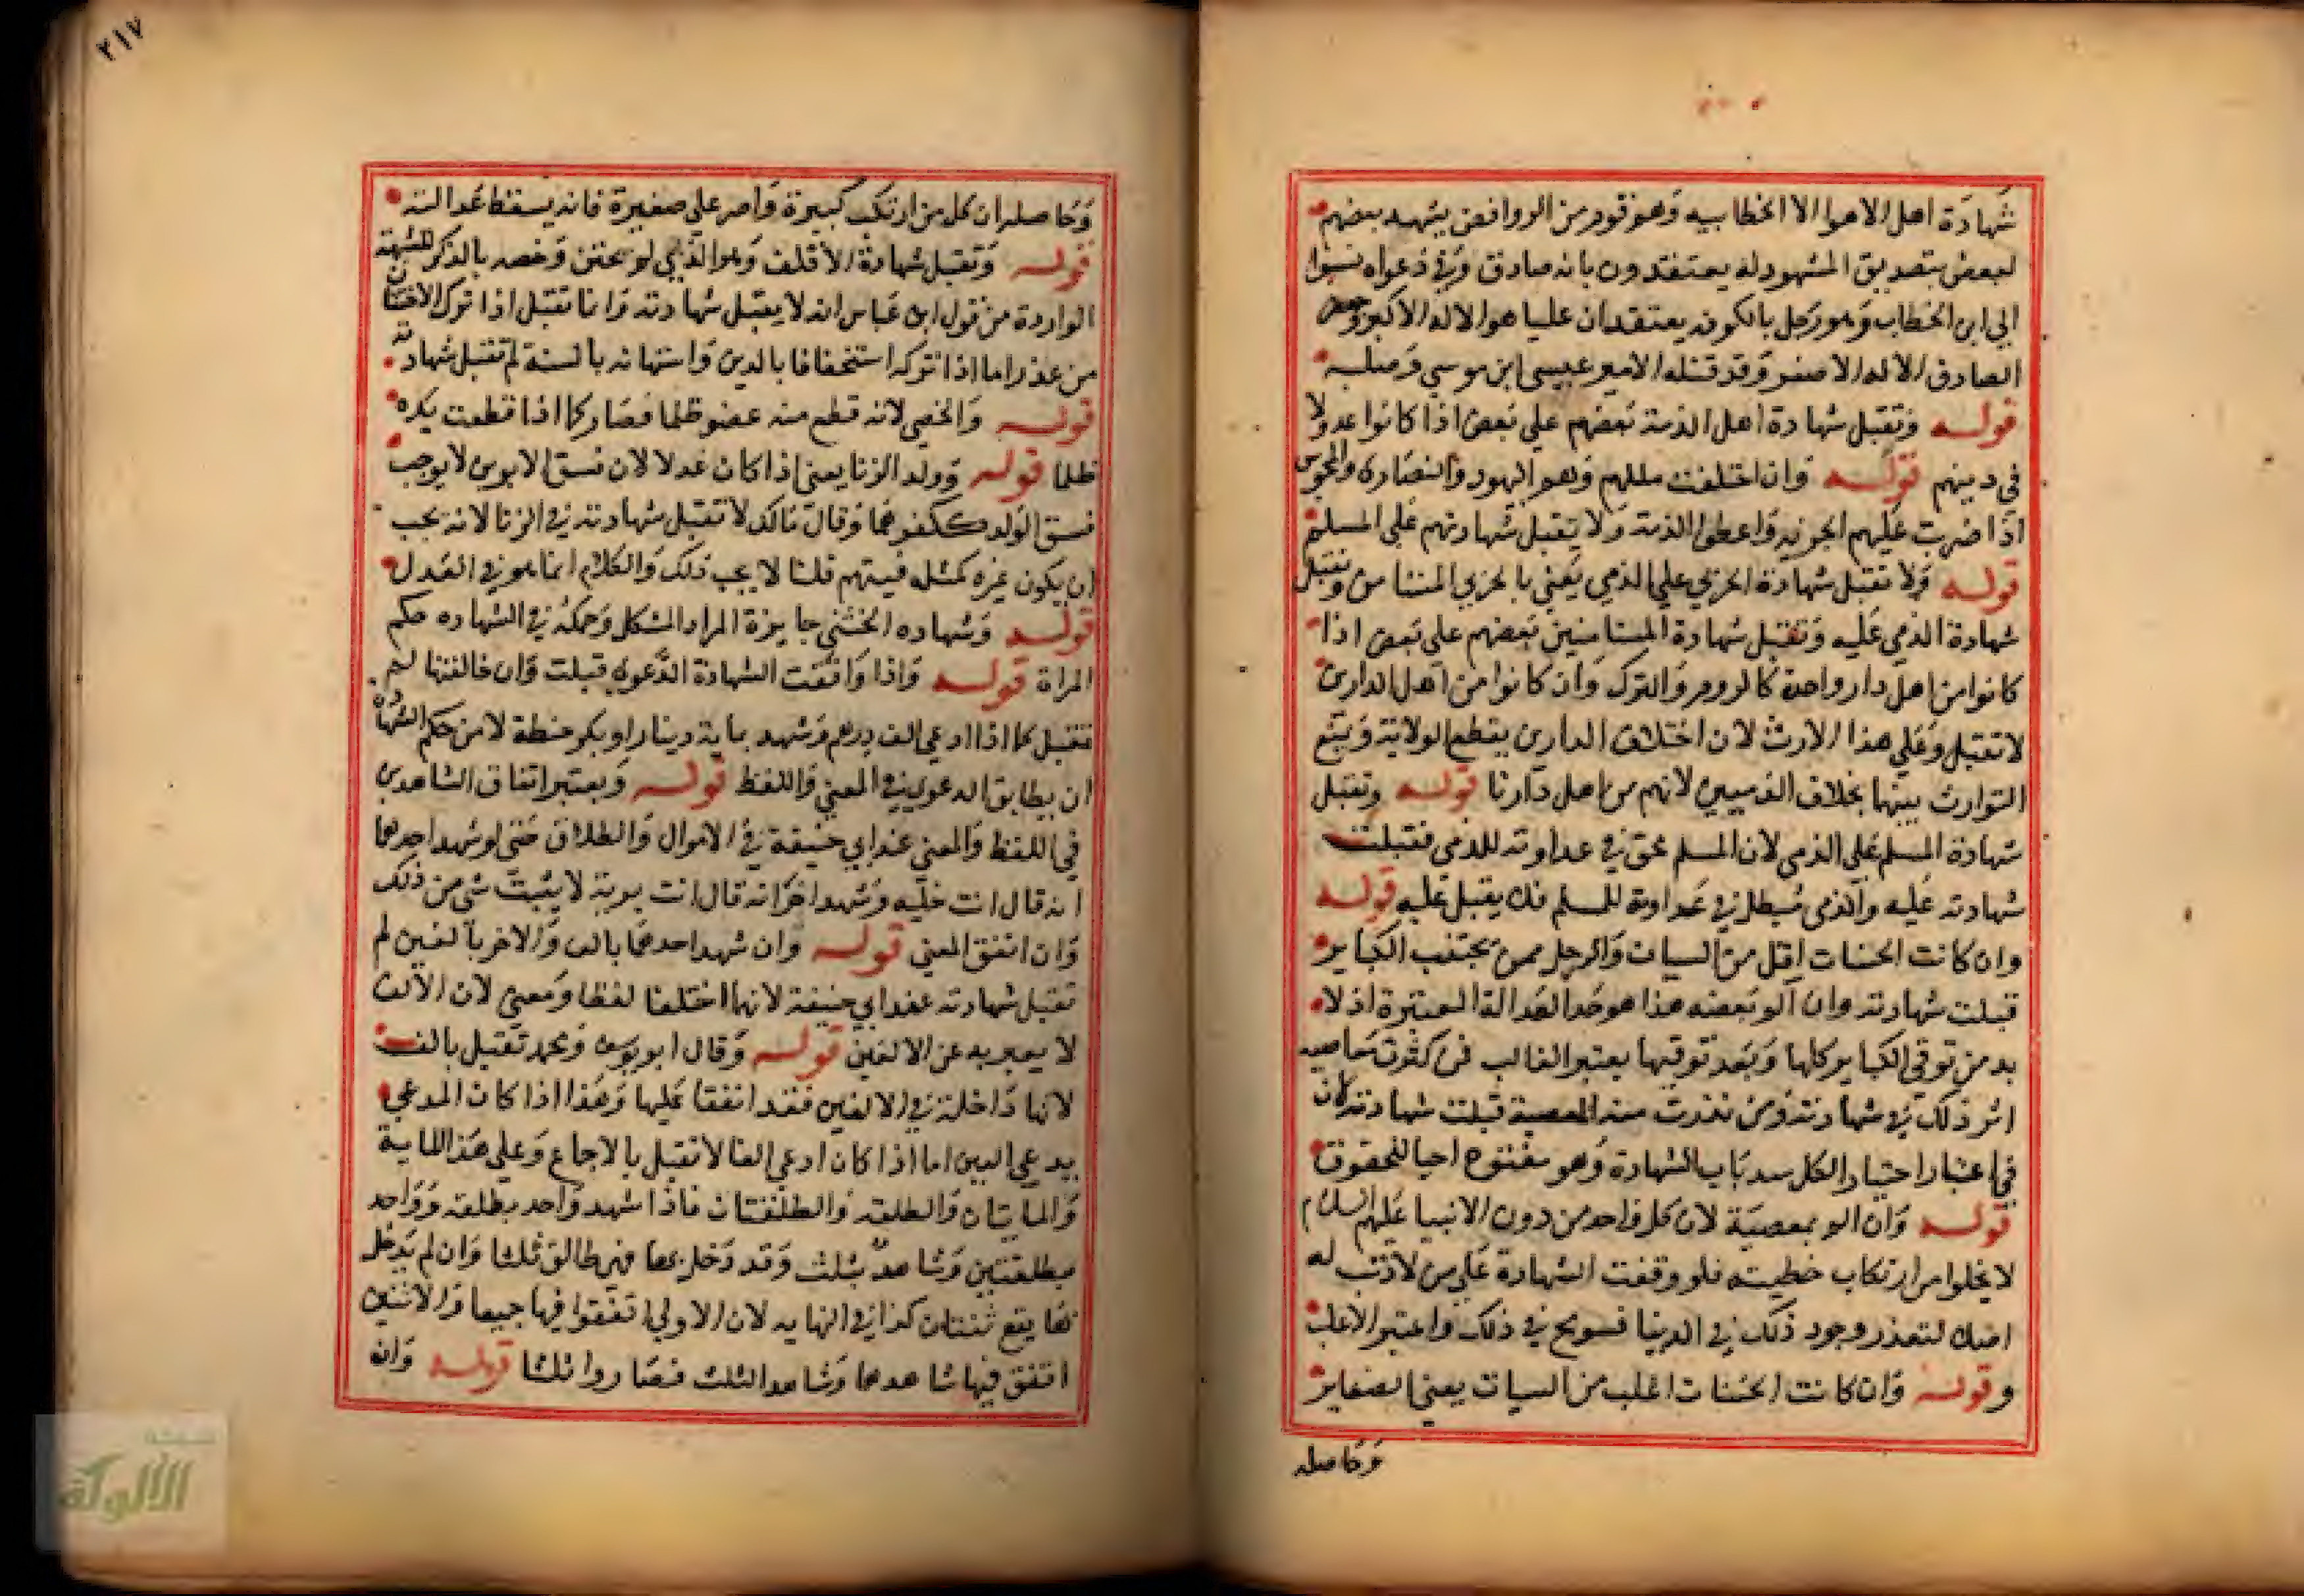 شهادة اهل الاهوا الا الخطابيه وهو قوم من الروافض يشهد بعضهم
لبعض بتصديق المشهود له يعتقدون بانه صادق في دعواه نسبوا
الي ابن الخطاب وهو رجل بالكوفه يعتقد ان عليا هو الاله الاكبر وجعفر
الصادق الاله الاصغر وقد قتله الامير عيسي ابن موسي وصلبه
قوله وتقبل شهادة اهل الذمة بعضهم علي بعض اذا كانوا عدولا
في دينهم قوله وان اختلفت مللهم وهو اليهود والنصاري والمجوس
اذا ضربت عليهم الجزيه واعطوا الذمة ولا يقبل شهادتهم علي المسلم
قوله ولا تقبل شهادة الحربي علي الذمي يعني بالحربي المستامن وتقبل
شهادة الذمي عليه وتقبل شهادة المستامنين بعضهم علي بعض اذا
كانوا من اهل دار واحدة كالروم والترك وان كانوا من اهل الدارين
لا تقبل وعلي هذا الارث لان اختلاف الدارين يقطع الولاية ويمنع
التوارث بينهما بخلاف الذميين لانهم من اهل دارنا قوله وتقبل
شهادة المسلم علي الذمي لان المسلم محق في عداوته للذمي فقبلت
شهادته عليه والذمي مبطل في عداوته للمسلم فلا يقبل عليه قوله
وان كانت الحسنات اقل من السيات والرجل ممن يجتنب الكباير
قبلت شهادته وان الم بمعصه هذا هو حد العدالة المعتبرة اذ لا
بد من توقي الكباير كلها وبعد توقيها يعتبر الغالب فمن كثرت معاصيه
اثر ذلك في شهادته ومن ندرت منه المعصية قبلت شهادته لان
في اعتبار اجتناب الكل سد باب الشهادة وهو مفتوح احيا للحقوق
قوله وان الم بمعصية لان كل واحد من دون الانبيا عليهم السلام
لا يخلوا من ارتكاب خطيئه فلو وقفت الشهادة علي من لا ذنب له
اصلا لتعذر وجود ذلك في الدنيا فسومح في ذلك واعتبر الاغلب
وقوله وان كانت الحسنات اغلب من السيات يعني الصغاير
وحاصله
٢١٧
وحاصله ان كل من ارتكب كبيرة واصر علي صغيرة فانه يسقط عدالته
قوله وتقبل شهادة الاقلف وهو الذي لم يختتن وخصه بالذكر للشبهة
الواردة من قول ابن عباس انه لا يقبل شهادته وانما تقبل اذا ترك الاختتان
من عذر اما اذا تركه استخفافا بالدين واستهانه بالسنة لم تقبل شهادته
قوله والخصي لانه قطع منه عضو ظلما فصار كما اذا قطعت يده
ظلما قوله وولد الزنا يعني اذا كان عدلا لان فسق الابوين لا يوجب
فسق الولد ككفرهما وقال مالك لا تقبل شهادته في الزنا لانه يحب
ان يكون غيره كمثله فيتهم قلنا لا يحب ذلك والكلام انما هو في العدل
قوله وشهاده الخنثي جايزة المراد المشكل وحكمه في الشهاده حكم
المراة قوله واذا وافقت الشهادة الدعوي قبلت وان خالفتها لم
تقبل كما اذا ادعي الف درهم وشهد بماية دينار او بكر حنطة لان من حكم الشهادة
ان يطابق الدعوي في المعني واللفظ قوله ويعتبر اتفاق الشاهدين
في اللفظ والمعني عند ابي حنيفة في الاموال والطلاق حتي لو شهد احدهما
انه قال انت خليه وشهد اخر انه قال انت برية لا يثبت شي من ذلك
وان اتفق المعني قوله وان شهد احدهما بالف والاخر بالفين لم
تقبل شهادته عند ابي حنيفة لانهما اختلفا لفظا ومعني لان الالف
لا يعبر به عن الالفين قوله وقال ابو يوسف ومحمد تقبل بالف
لانها داخلة في الالفين فقد اتفقا عليها وهذا اذا كان المدعي
يدعي الفين اما اذا كان ادعي الفا لا تقبل بالاجماع وعلي هذا الماية
والمايتان والطلقه والطلقتان فاذا شهد واحد بطلقه وواحد
بطلقتين وشاهد بثلث وقد دخل بها فهي طالق ثلثا وان لم يدخل
بها يقع ثنتان كذا في النهايه لان الاولي اتفقوا فيها جميعا والاثنين
اتفق فيها شاهدهما وشاهد الثلث فصاروا ثلثا قوله وان
الألوكة